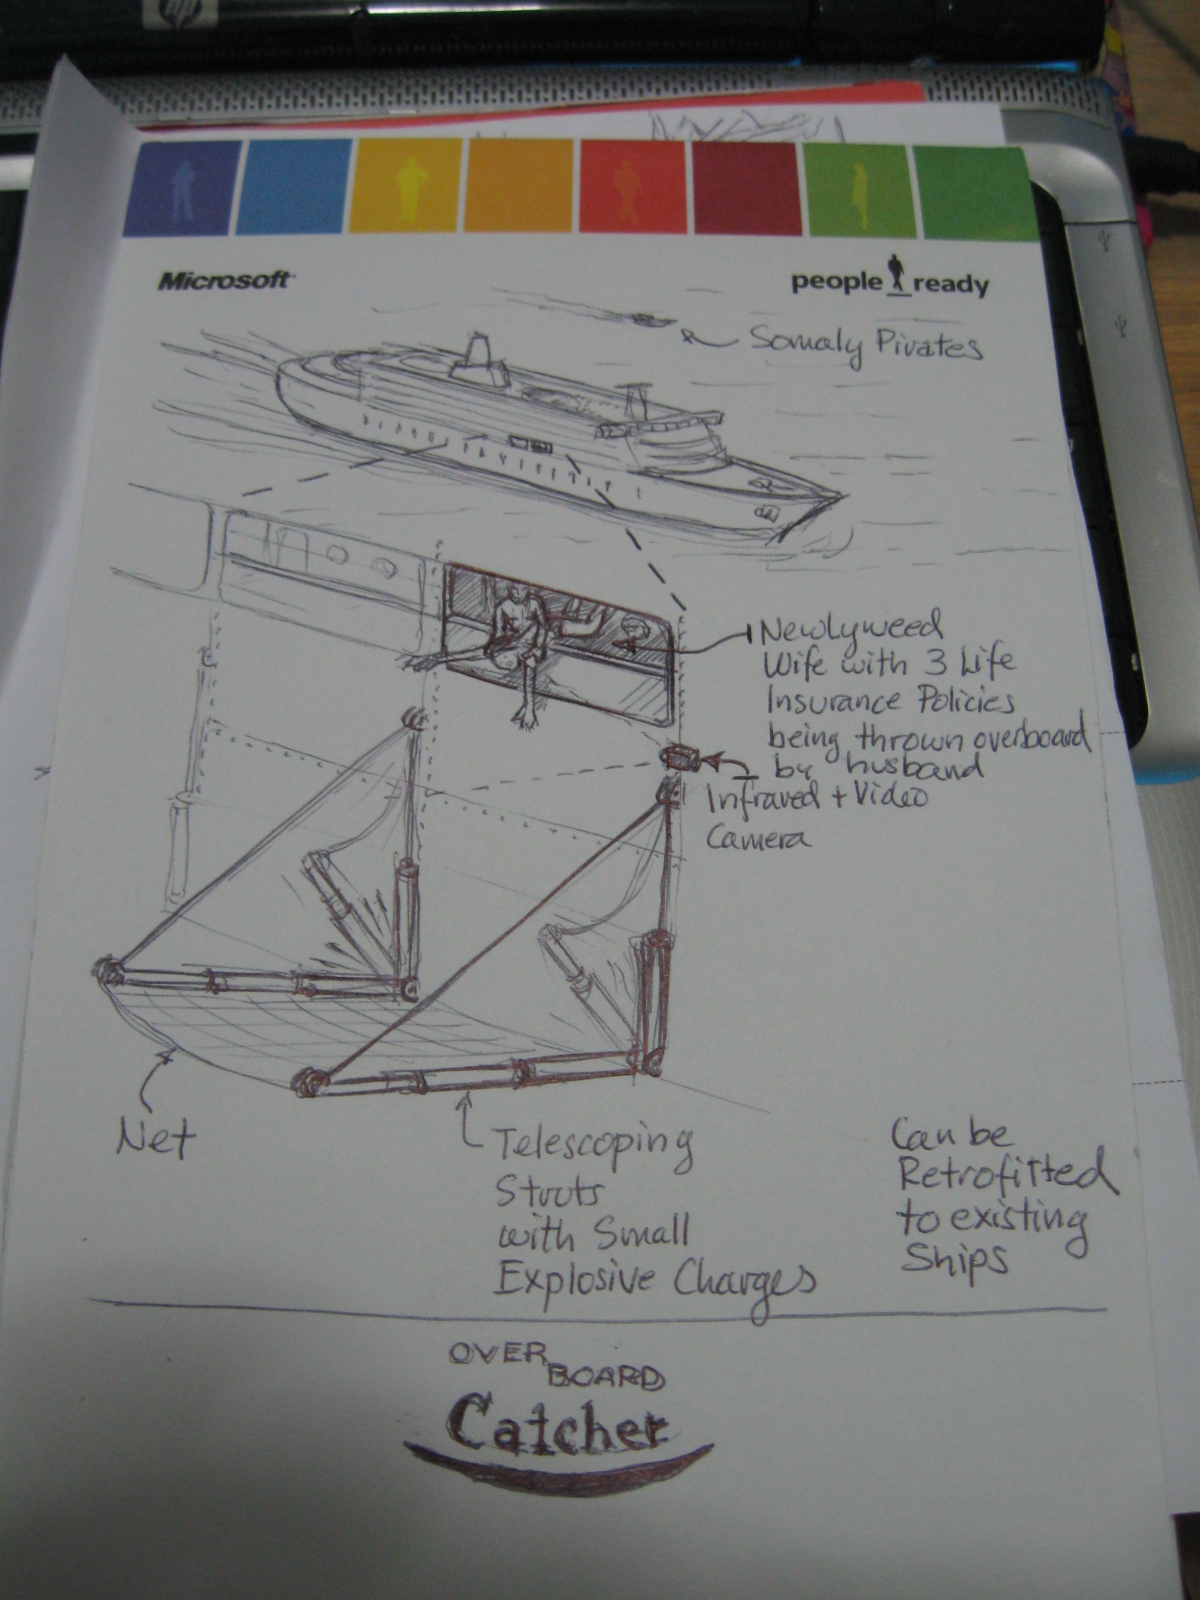 hp
Microsoft
people ready
Somaly Pirates
Newlyweed
Wife with 3 Life
Insurance Policies
being thrown overboard
by husband
Infrared + Video
Camera
Net
Telescoping
Struts
with Small
Explosive Charges
Can be
Retrofitted
to existing
Ships
OVER
BOARD
Catcher